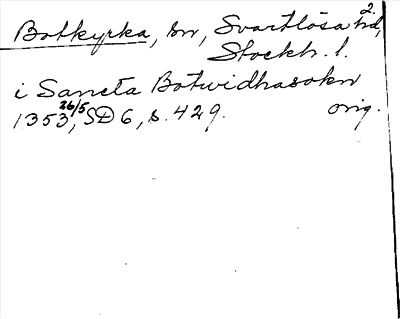 2.
Botkyrka, sn, Svartlösa hd,
Stockh. l.
i Sancta Botwidhasokn
1353 26/5, SD 6, s. 429. orig.